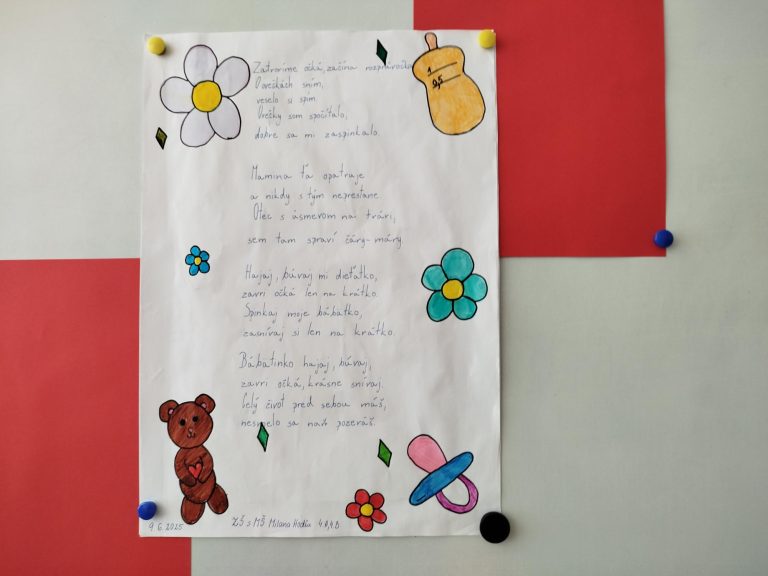 Zatvoríme očká, začína rozprávočka
O ovečkách sním,
veselo si spím.
Ovečky som spočítalo,
dobre sa mi zaspinkalo.
Mamina ťa opatruje
a nikdy s tým neprestane
Otec s úsmevom na tvári,
sem tam spraví čáry-máry
Hajaj, búvaj mi dieťatko,
zavri očká len na krátko.
Spinkaj moje bábätko,
zasnívaj si len na krátko.
Bábätinko hajaj, búvaj,
zavri očká, krásne snívaj.
Celý život pred sebou máš,
nesmelo sa naň pozeráš.
9.6.2025
ZŠ s MŠ Milana Hodžu 4.A,4.B
1
0,5